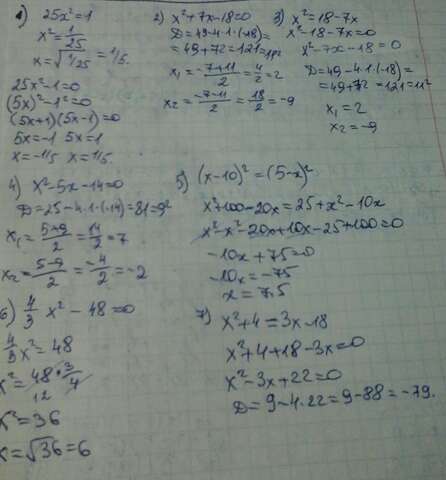 1) 25x²=1
x²=1/25
x=√1/25=1/5.
25x²-1=0
(5x)²-1²=0
(5x+1)(5x-1)=0
5x=-1 5x=1
x=-1/5 x=1/5.
2) x²+7x-18=0
D=49-4·1·(-18)=
=49+72=121=11²
x₁=-7+11/2=4/2=2
x₂=-7-11/2=18/2=-9
3) x²=18-7x
x²-18-7x=0
x²-7x-18=0
D=49-4·1·(-18)=
=49+72=121=11²
x₁=2
x₂=-9
4) x²-5x-14=0
D=25-4·1·(-14)=81=9²
x₁=5+9/2=14/2=7
x₂=5-9/2=-4/2=-2
5) (x-10)²=(5-x)²
x²+100-20x=25+x²-10x
x²-x²-20x+10x-25+100=0
-10x+75=0
-10x=-75
x=7,5
6) 4/3 x²-48=0
4/3 x²=48
x²=48·3/4
12
x²=36
x=√36=6
7) x²+4=3x-18
x²+4+18-3x=0
x²-3x+22=0
D=9-4·22=9-88=-79.